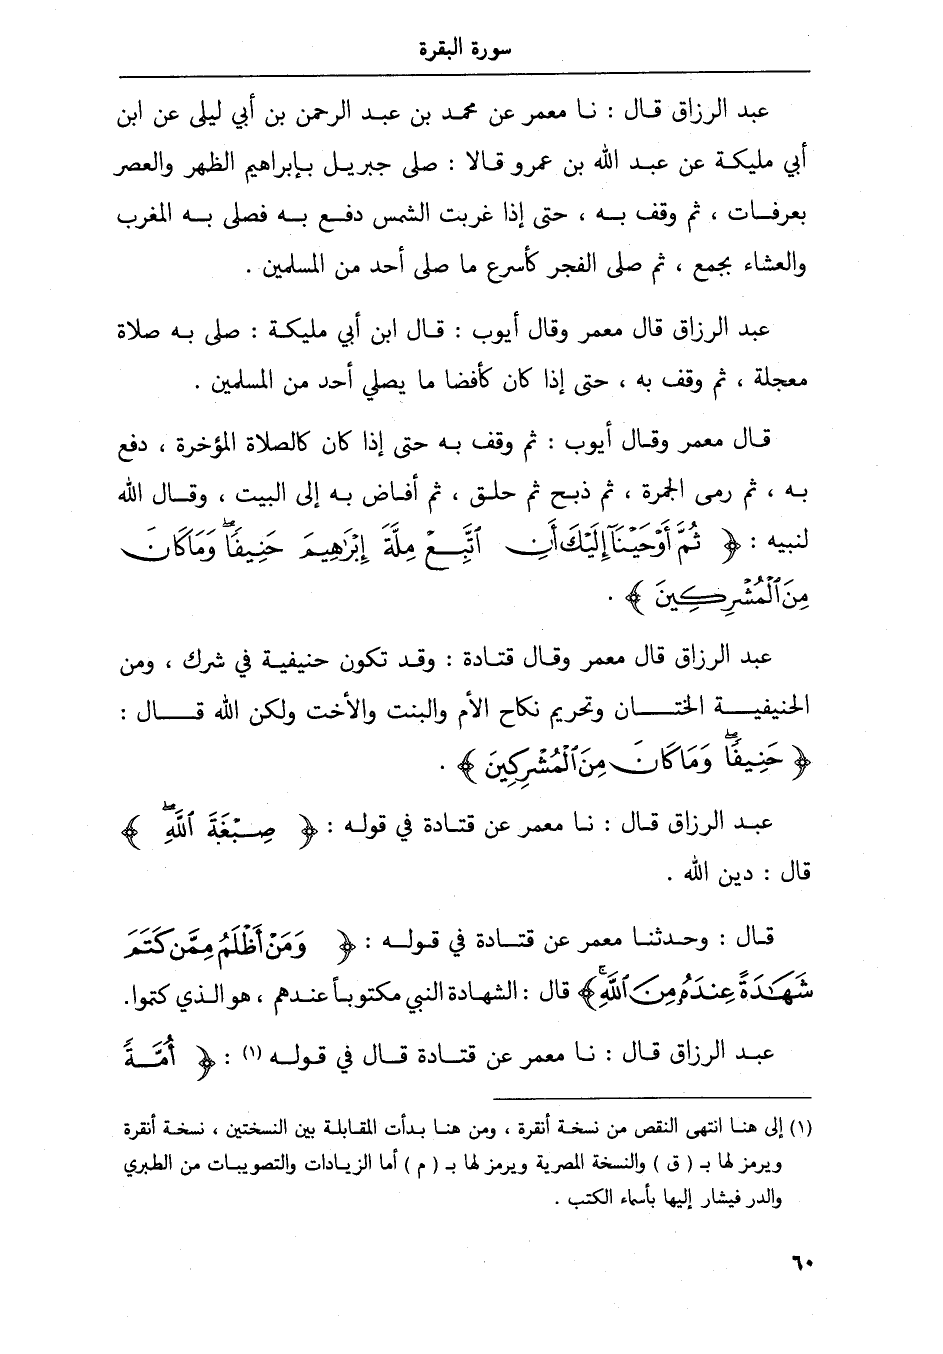 سورة البقرة
عبد الرزاق قال : نا معمر عن محمد بن عبد الرحمن بن أبي ليلى عن ابن
أبي مليكة عن عبد الله بن عمرو قالا : صلى جبريل بإبراهيم الظهر والعصر
بعرفات ، ثم وقف به ، حتى إذا غربت الشمس دفع به فصلى به المغرب
والعشاء بجمع ، ثم صلى الفجر كأسرع ما صلى أحد من المسلمين .
عبد الرزاق قال معمر وقال أيوب : قال ابن أبي مليكة : صلى به صلاة
معجلة ، ثم وقف به ، حتى إذا كان كأفضا ما يصلي أحد من المسلمين .
قال معمر وقال أيوب : ثم وقف به حتى إذا كان كالصلاة المؤخرة ، دفع
به ، ثم رمى الجمرة ، ثم ذبح ثم حلق ، ثم أفاض به إلى البيت ، وقال الله
لنبيه : ﴿ ثُمَّ أَوْحَيْنَآ إِلَيْكَ أَنِ ٱتَّبِعْ مِلَّةَ إِبْرَٰهِيمَ حَنِيفًا ۖ وَمَا كَانَ
مِنَ ٱلْمُشْرِكِينَ ﴾ .
عبد الرزاق قال معمر وقال قتادة : وقد تكون حنيفية في شرك ، ومن
الحنيفية الختان وتحريم نكاح الأم والبنت والأخت ولكن الله قال :
﴿ حَنِيفًا ۖ وَمَا كَانَ مِنَ ٱلْمُشْرِكِينَ ﴾ .
عبد الرزاق قال : نا معمر عن قتادة في قوله : ﴿ صِبْغَةَ ٱللَّهِ ۖ ﴾
قال : دين الله .
قال : وحدثنا معمر عن قتادة في قوله : ﴿ وَمَنْ أَظْلَمُ مِمَّن كَتَمَ
شَهَٰدَةً عِندَهُۥ مِنَ ٱللَّهِ ۗ ﴾ قال : الشهادة النبي مكتوباً عندهم ، هو الذي كتموا.
عبد الرزاق قال : نا معمر عن قتادة قال في قوله (١) : ﴿ أُمَّةً
(١) إلى هنا انتهى النقص من نسخة أنقرة ، ومن هنا بدأت المقابلة بين النسختين ، نسخة أنقرة
ويرمز لها بـ ( ق ) والنسخة المصرية ويرمز لها بـ ( م ) أما الزيادات والتصويبات من الطبري
والدر فيشار إليها بأسماء الكتب .
٦٠